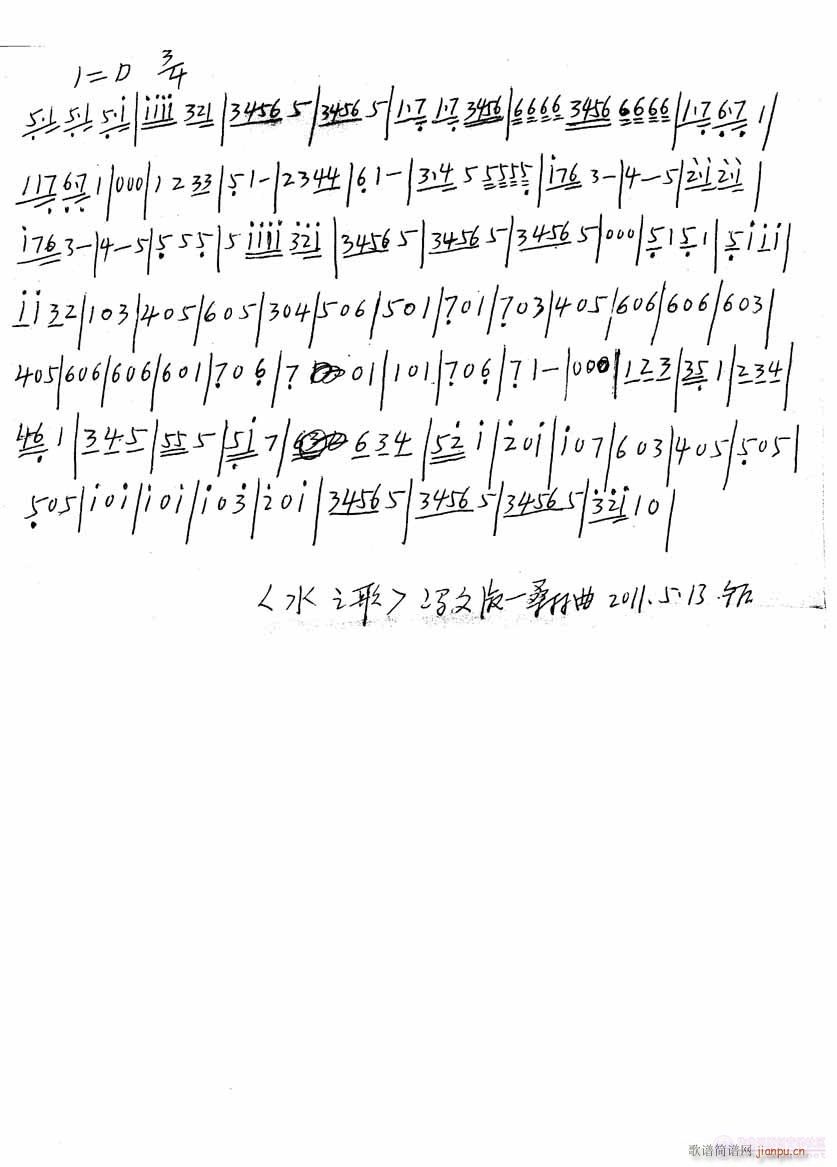 1=D 3/4
5·1 5·1 5·i|iiii 321|3456 5|3456 5|1·7 1·7 3456|6666 3456 6666|1·7 6·7 1|
117 6·7 1|000|1 2 33|5 1-|2344|6 1-|3·4 5 5555|i76 3-|4-5|2·i 2·i|
i76 3-|4-5|5 5 5|5 iiii 32i|3456 5|3456 5|3456 5|000|5 1 5 1|5 i i i|
i i 3 2|103|405|605|304|506|501|701|703|405|606|606|603|
405|606|606|601|706|7 01|101|706|71-|000|123|35 1|234|
46 1|34·5|55 5|5i 7|634|52 i|20i|i07|603|405|505|
505|i0i|i0i|i03|20i|3456 5|3456 5|3456 5|32i 10|
<水之形> 冯文版一 曲 2011.5.13
歌谱简谱网 jianpu.cn